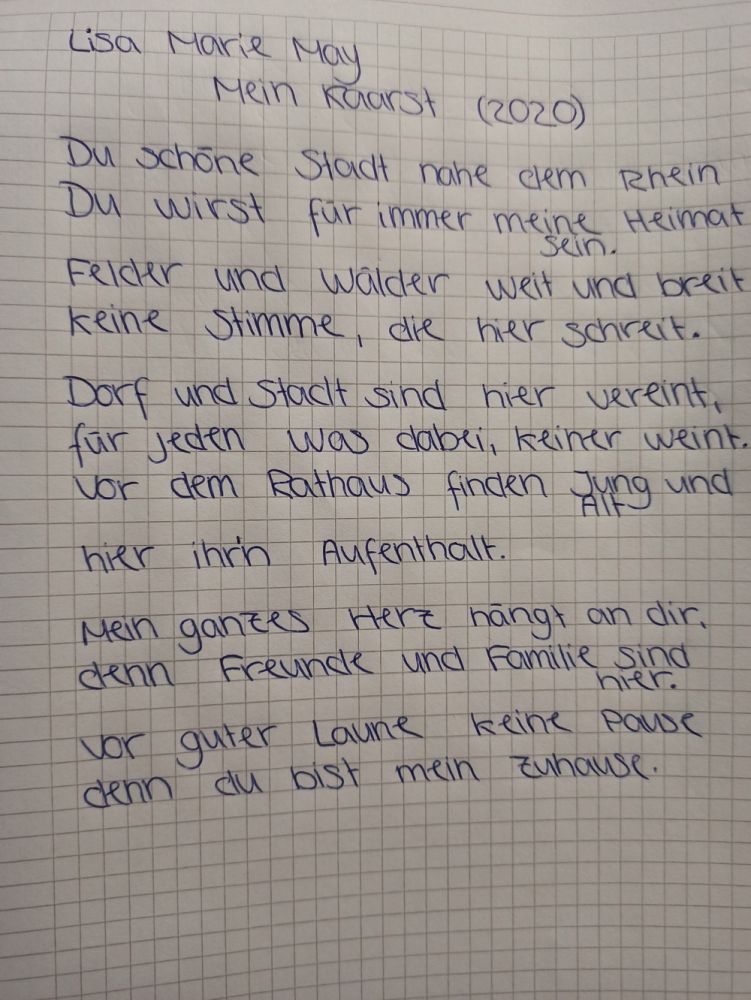 Lisa Marie May
Mein Kaarst (2020)
Du schöne Stadt nahe dem Rhein
Du wirst für immer meine Heimat
sein.
Felder und Wälder weit und breit
keine Stimme, die hier schreit.
Dorf und Stadt sind hier vereint,
für jeden was dabei, keiner weint.
Vor dem Rathaus finden Jung und
Alt
hier ihr'n Aufenthalt.
Mein ganzes Herz hängt an dir,
denn Freunde und Familie sind
hier.
Vor guter Laune keine Pause
denn du bist mein zuhause.